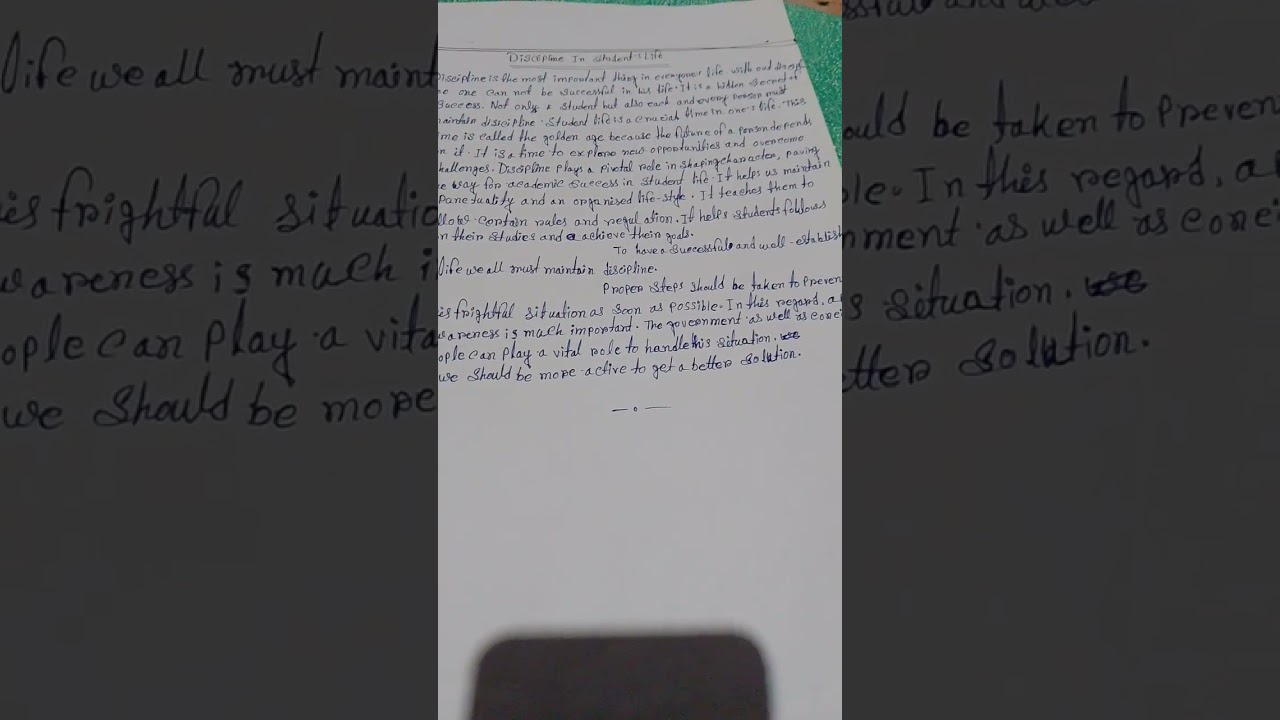 Discipline In Student's Life
Discipline is the most important thing in everyones life with out
one can not be successful in his life. It is a hidden secret of
success. Not only a student but also each and every person must
maintain discipline. Student life is a crucial time in one's life. This
me is called the golden age because the future of a person depends
n it. It is a time to explore new opportunities and overcome
hallenges. Discipline plays a pivotal role in shaping character, paving
e way for academic success in student life. It helps us maintain
Panctuality and an organised life-style. It teaches them to
llow certain rules and regulation. It helps students follows
n their studies and achieve their goals.
To have a successful and well-establish
life we all must maintain discipline.
Proper steps should be taken to preven
is frightful situation as soon as possible. In this regard, a
wareness is much important. The government as well as conci
ople can play a vital role to handle this situation.
we should be more active to get a better solution.